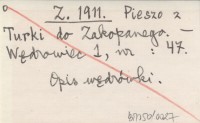 Z. 1911. Pieszo z
Turki do Zakopanego. –
Wędrowiec 1, nr : 47.
Opis wędrówki.